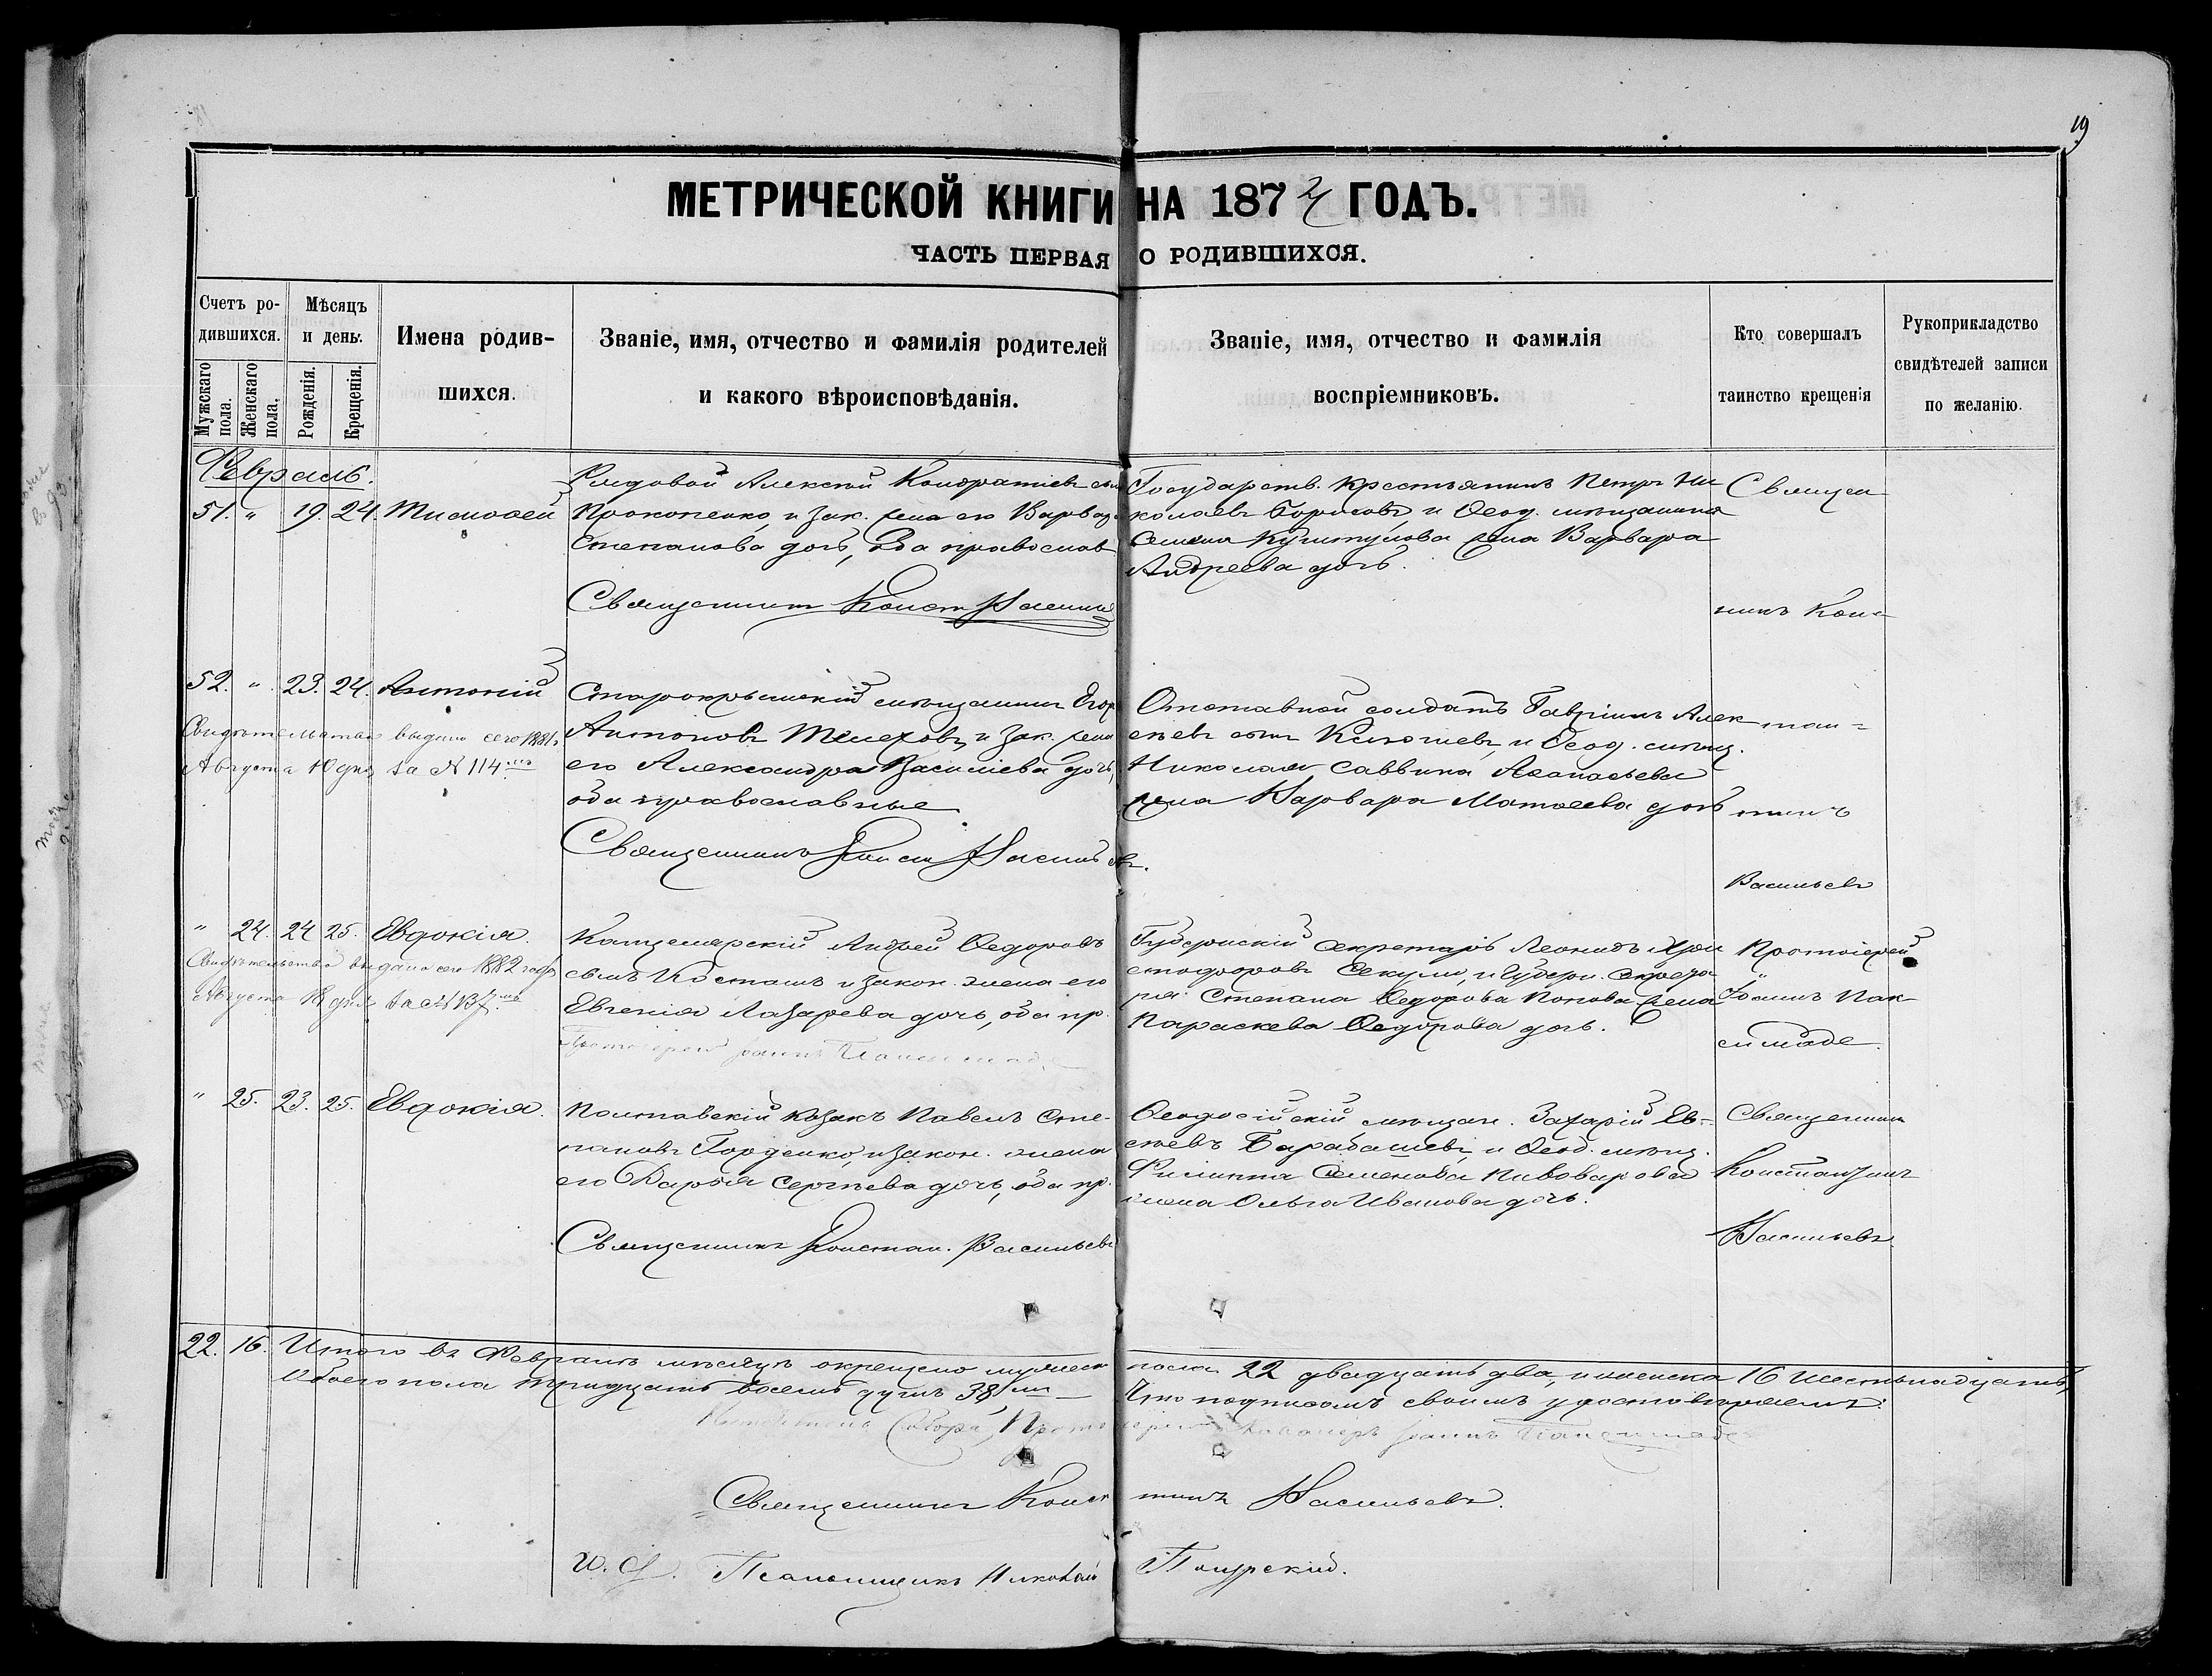 19
МЕТРИЧЕСКОЙ КНИГИ НА 1872 ГОДЪ.
ЧАСТЬ ПЕРВАЯ О РОДИВШИХСЯ.
Счетъ ро-
дившихся.
Мужскаго пола.
Женскаго пола.
Мѣсяцъ
и день.
Рожденія.
Крещенія.
Имена родив-
шихся.
Званіе, имя, отчество и фамилія родителей
и какого вѣроисповѣданія.
Званіе, имя, отчество и фамилія
воспріемниковъ.
Кто совершалъ
таинство крещенія
Рукоприкладство
свидѣтелей записи
по желанію.
Февраль.
51. " 19. 24. Тимофей
Рядовой Алексѣй Кондратіевъ
Прокопенко, и зак. жена его Варвар
Степанова дочь, оба православ.
Священникъ Конст. Васильев
Государств. крестьянинъ Петръ Ни
колаевъ Борисовъ, и Ѳеод. мѣщанина
Семена жена Варвара
Андреева дочь.
Священ
никъ Кон=
52. " 23. 24. Антоній
Свидѣтельство выдано сего 1881 г.
Августа 10 дня за № 114
Старокрымскій мѣщанинъ Егор
Антоновъ Телеховъ, и зак. жена
его Александра Васильева дочь,
оба православные
Священникъ Конст. Васильевъ.
Отставной солдатъ Гавріилъ Алек
сѣевъ и Ѳеод. мѣщ.
Николая Саввина Аѳанасьева
жена Варвара Матѳеева дочь
стан=
тинъ
Васильевъ
" 24. 24. 25. Евдокія.
Свидѣтельство выдано сего 1882 года
Августа 18 дня за № 137
Андрей Ѳедоровъ
сынъ Косташъ и закон. жена его
Евгенія Лазарева дочь, оба пр.
Протоіерей Іоаннъ Паксимаде
Губернскій секретарь Леонидъ Хри
стофоровъ Секули, и Губерн. секрета
ря Степана Ѳедорова Попова жена
Параскева Ѳедорова дочь.
Протоіерей
Іоаннъ Пак
симаде.
" 25. 23. 25. Евдокія.
Полтавскій козакъ Павелъ Сте-
пановъ Гордѣенко, и закон. жена
его Дарья Сергѣева дочь, оба пр.
Священникъ Констан. Васильевъ
Ѳеодосійскій мѣщан. Захарій Ев-
сѣевъ Барабашевъ, и Ѳеод. мѣщ.
Филиппа Семенова Пивоварова
жена Ольга Иванова дочь.
Священникъ
Константинъ
Васильевъ.
22. 16. Итого въ Февралѣ мѣсяцѣ окрещено мужеск пола 22 двадцать два, и женска 16 шестьнадцать,
Обоего пола тридцать восемь душъ 38, Что подписомъ своимъ удостовѣряемъ:
Настоятель Собора, Протоіерей Іоаннъ Паксимаде
Священникъ Константинъ Васильевъ.
И. д. Псаломщика Николай